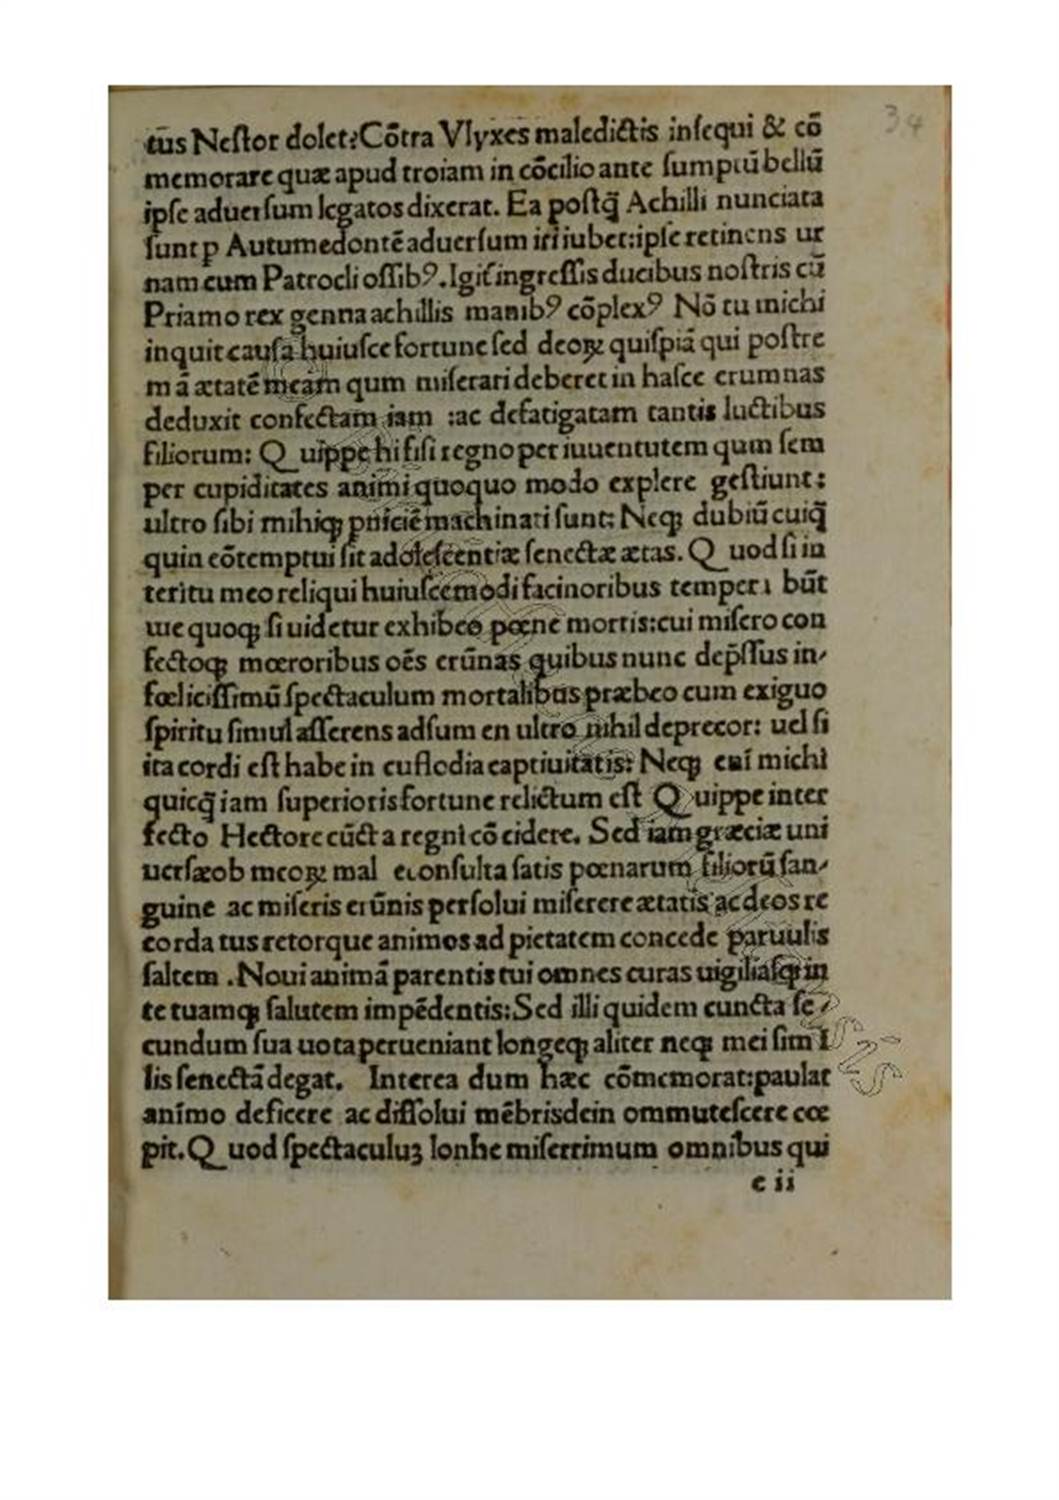 34
tūs Neſtor dolet:Cōtra Vlyxes maledictis inſequi & cō
memorare quæ apud troiam in cōcilio ante ſumptū bellū
ipſe aduerſum legatos dixerat. Ea poſtq̄ Achilli nunciata
ſunt p Autumedontē aduerſum iri iubet:ipſe retinens ur
nam cum Patrocli oſſibꝰ.Igit ingreſſis ducibus noſtris cū
Priamo rex genna achillis manibꝰ cōplexꝰ Nō tu michi
inquit cauſa huiuſce fortune ſed deoꝝ quiſpiā qui poſtre
mā ætatē meam qum miſerari deberet in haſce erumnas
deduxit confectam iam :ac defatigatam tantis luctibus
filiorum: Quippe hi fiſi regno per iuuentutem qum ſem
per cupiditates animi quoquo modo explere geſtiunt:
ultro ſibi mihiqꝫ pniciē machinati ſunt: Neqꝫ dubiū cuiq̄
quin cōtemptui ſit adoleſcentiæ ſenectæ ætas. Quod ſi in
teritu meo reliqui huiuſcemodi facinoribus temperabūt
me quoqꝫ ſi uidetur exhibeo pœne mortis:cui miſero con
fectoqꝫ mœroribus oēs erūnas quibus nunc dep̄ſſus in-
fœliciſſimū ſpectaculum mortalibus præbeo cum exiguo
ſpiritu ſimul aſſerens adſum en ultro nihil deprecor: uel ſi
ita cordi eſt habe in cuſtodia captiuitatis: Neqꝫ eni michi
quicq̄ iam ſuperioris fortune relictum eſt Quippe inter
fecto Hectore cūcta regni cōcidere. Sed iam græciæ uni
uerſæ ob meoꝝ mal econſulta ſatis pœnarum filiorū ſan-
guine ac miſeris erūnis perſolui miſerere ætatis ac deos re
corda tus retorque animos ad pietatem concede paruulis
ſaltem .Noui animā parentis tui omnes curas uigiliaſqꝫ in
te tuamqꝫ ſalutem impēdentis:Sed illi quidem cuncta ſe-
cundum ſua uota perueniant longeqꝫ aliter neqꝫ mei ſimi
lis ſenectā degat. Interea dum hæc cōmemorat:paulat
animo deficere ac diſſolui mēbris dein ommuteſcere cœ
pit.Quod ſpectaculuꝫ lonhe miſerrimum omnibus qui
e ii